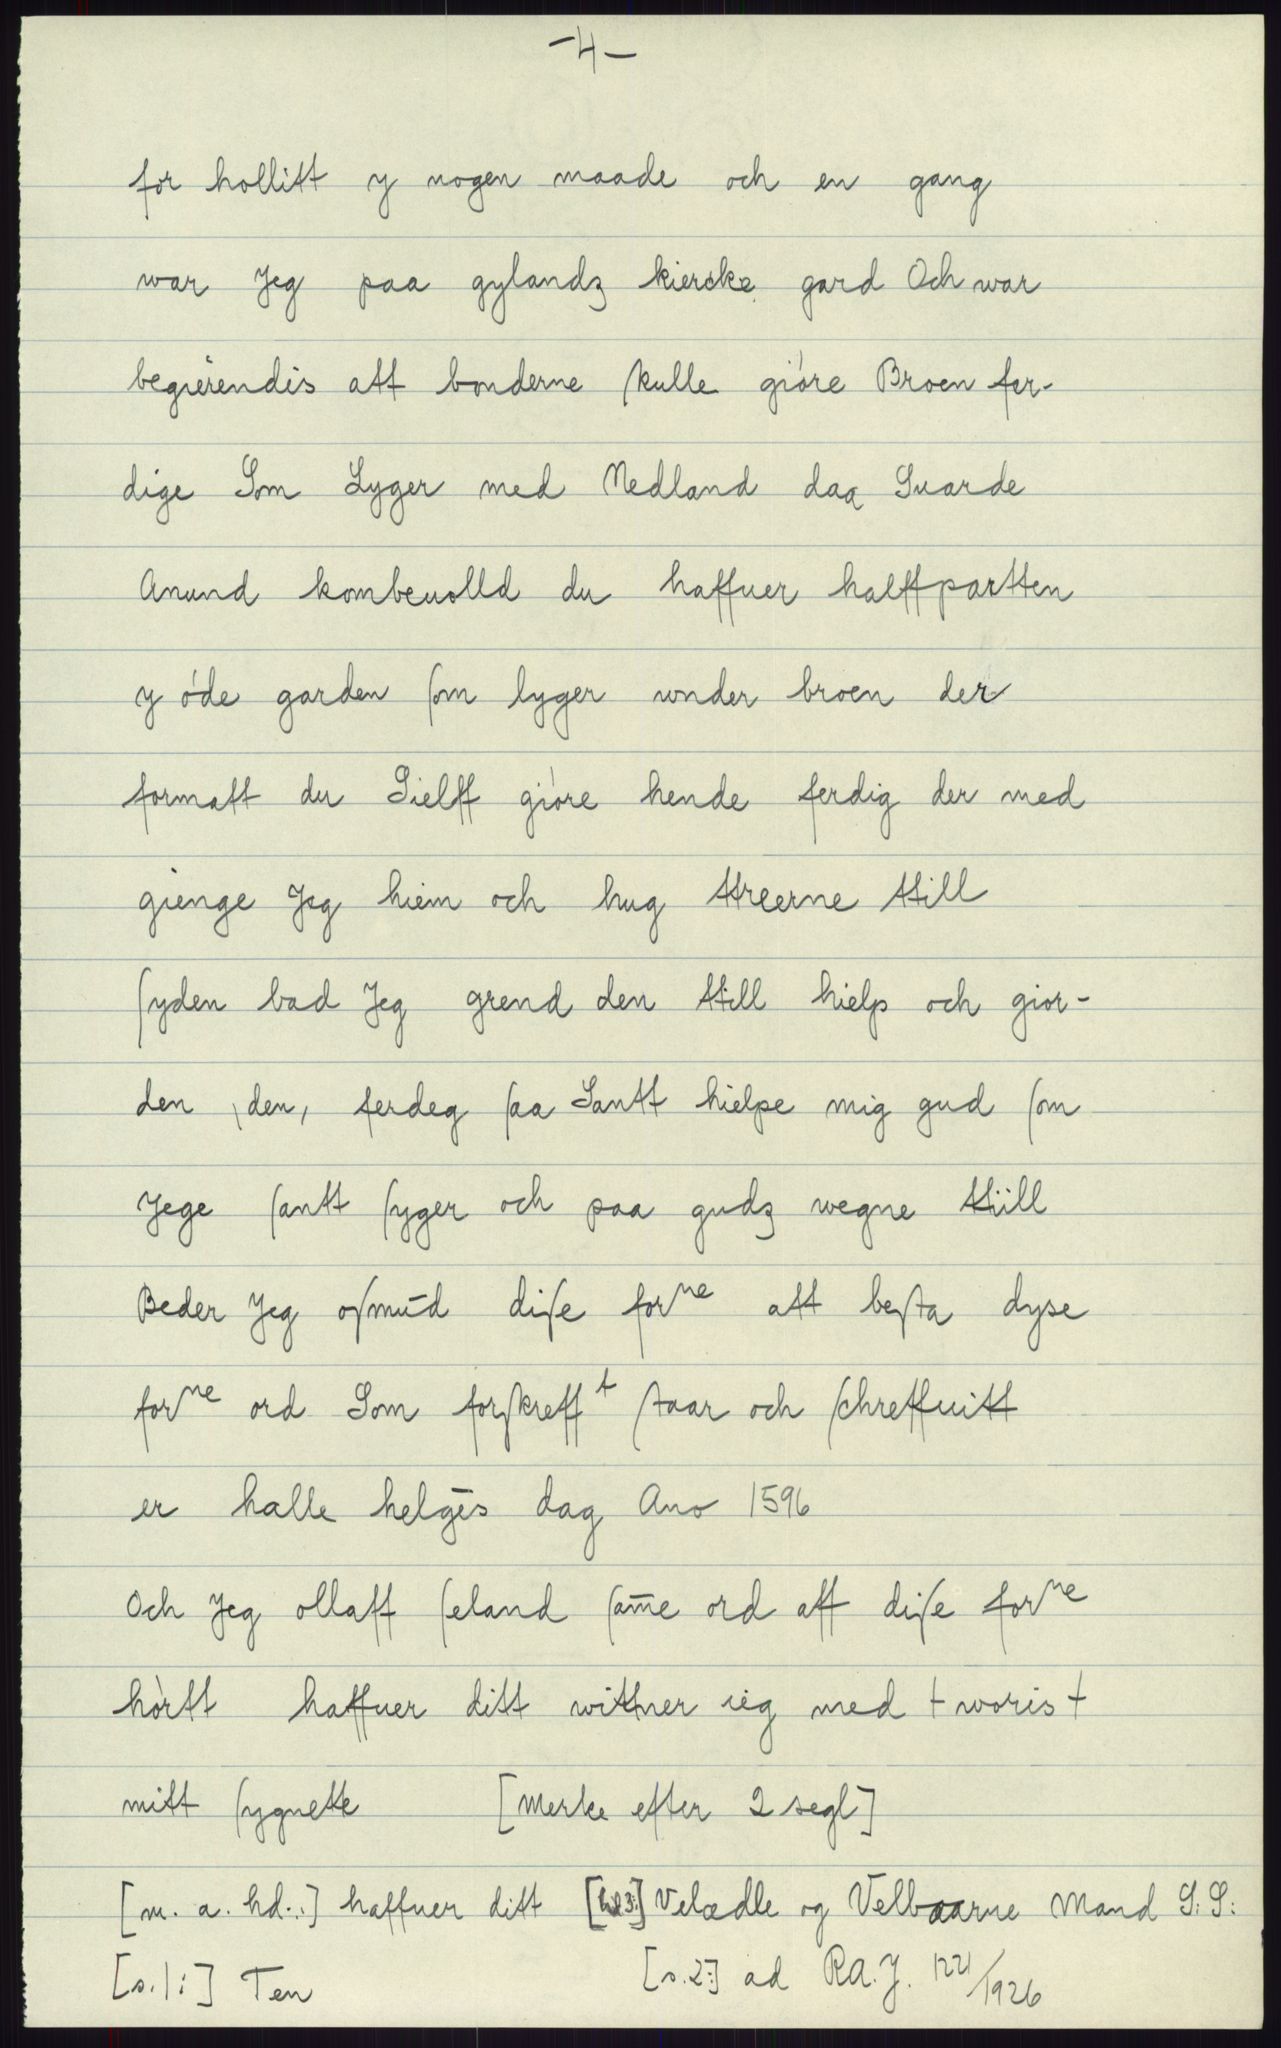 -4-
for hollitt y nogen maade och en gang
war Jeg paa gylandz kiercke gard Och war
begierendis att bonderne skulle gióre Broen fer-
dige Som Lyger med Nedland daa Suarde
Anund kombeuolld du haffuer halffpartten
y óde garden som lyger wnder broen der
formatt du Sielff gióre hende ferdig der med
gienge Jeg hiem och hug ttreerne ttill
syden bad Jeg grend den ttill hielp och gior-
den \den, ferdeg saa Santt hielpe mig gud som
Jege santt syger och paa gudz wegne ttiill
Beder Jeg osmūd disse forⁿᵉ att besta dyse
forⁿᵉ ord Som forskreffᵗ staar och schreffuitt
er halle helgēs dag Ano 1596
Och Jeg ollaff seland sam̄e ord aff disse forⁿᵉ
hórtt haffuer ditt wittner ieg med + woris +
mitt sygnette [Merke efter 2 segl]
[m. a. hd.:] haffuer ditt [hd 3:] Velædle og Velbaarne Mand S. S:
[s. 1:] Ten [s. 2:] ad RA. J. 1221/1926